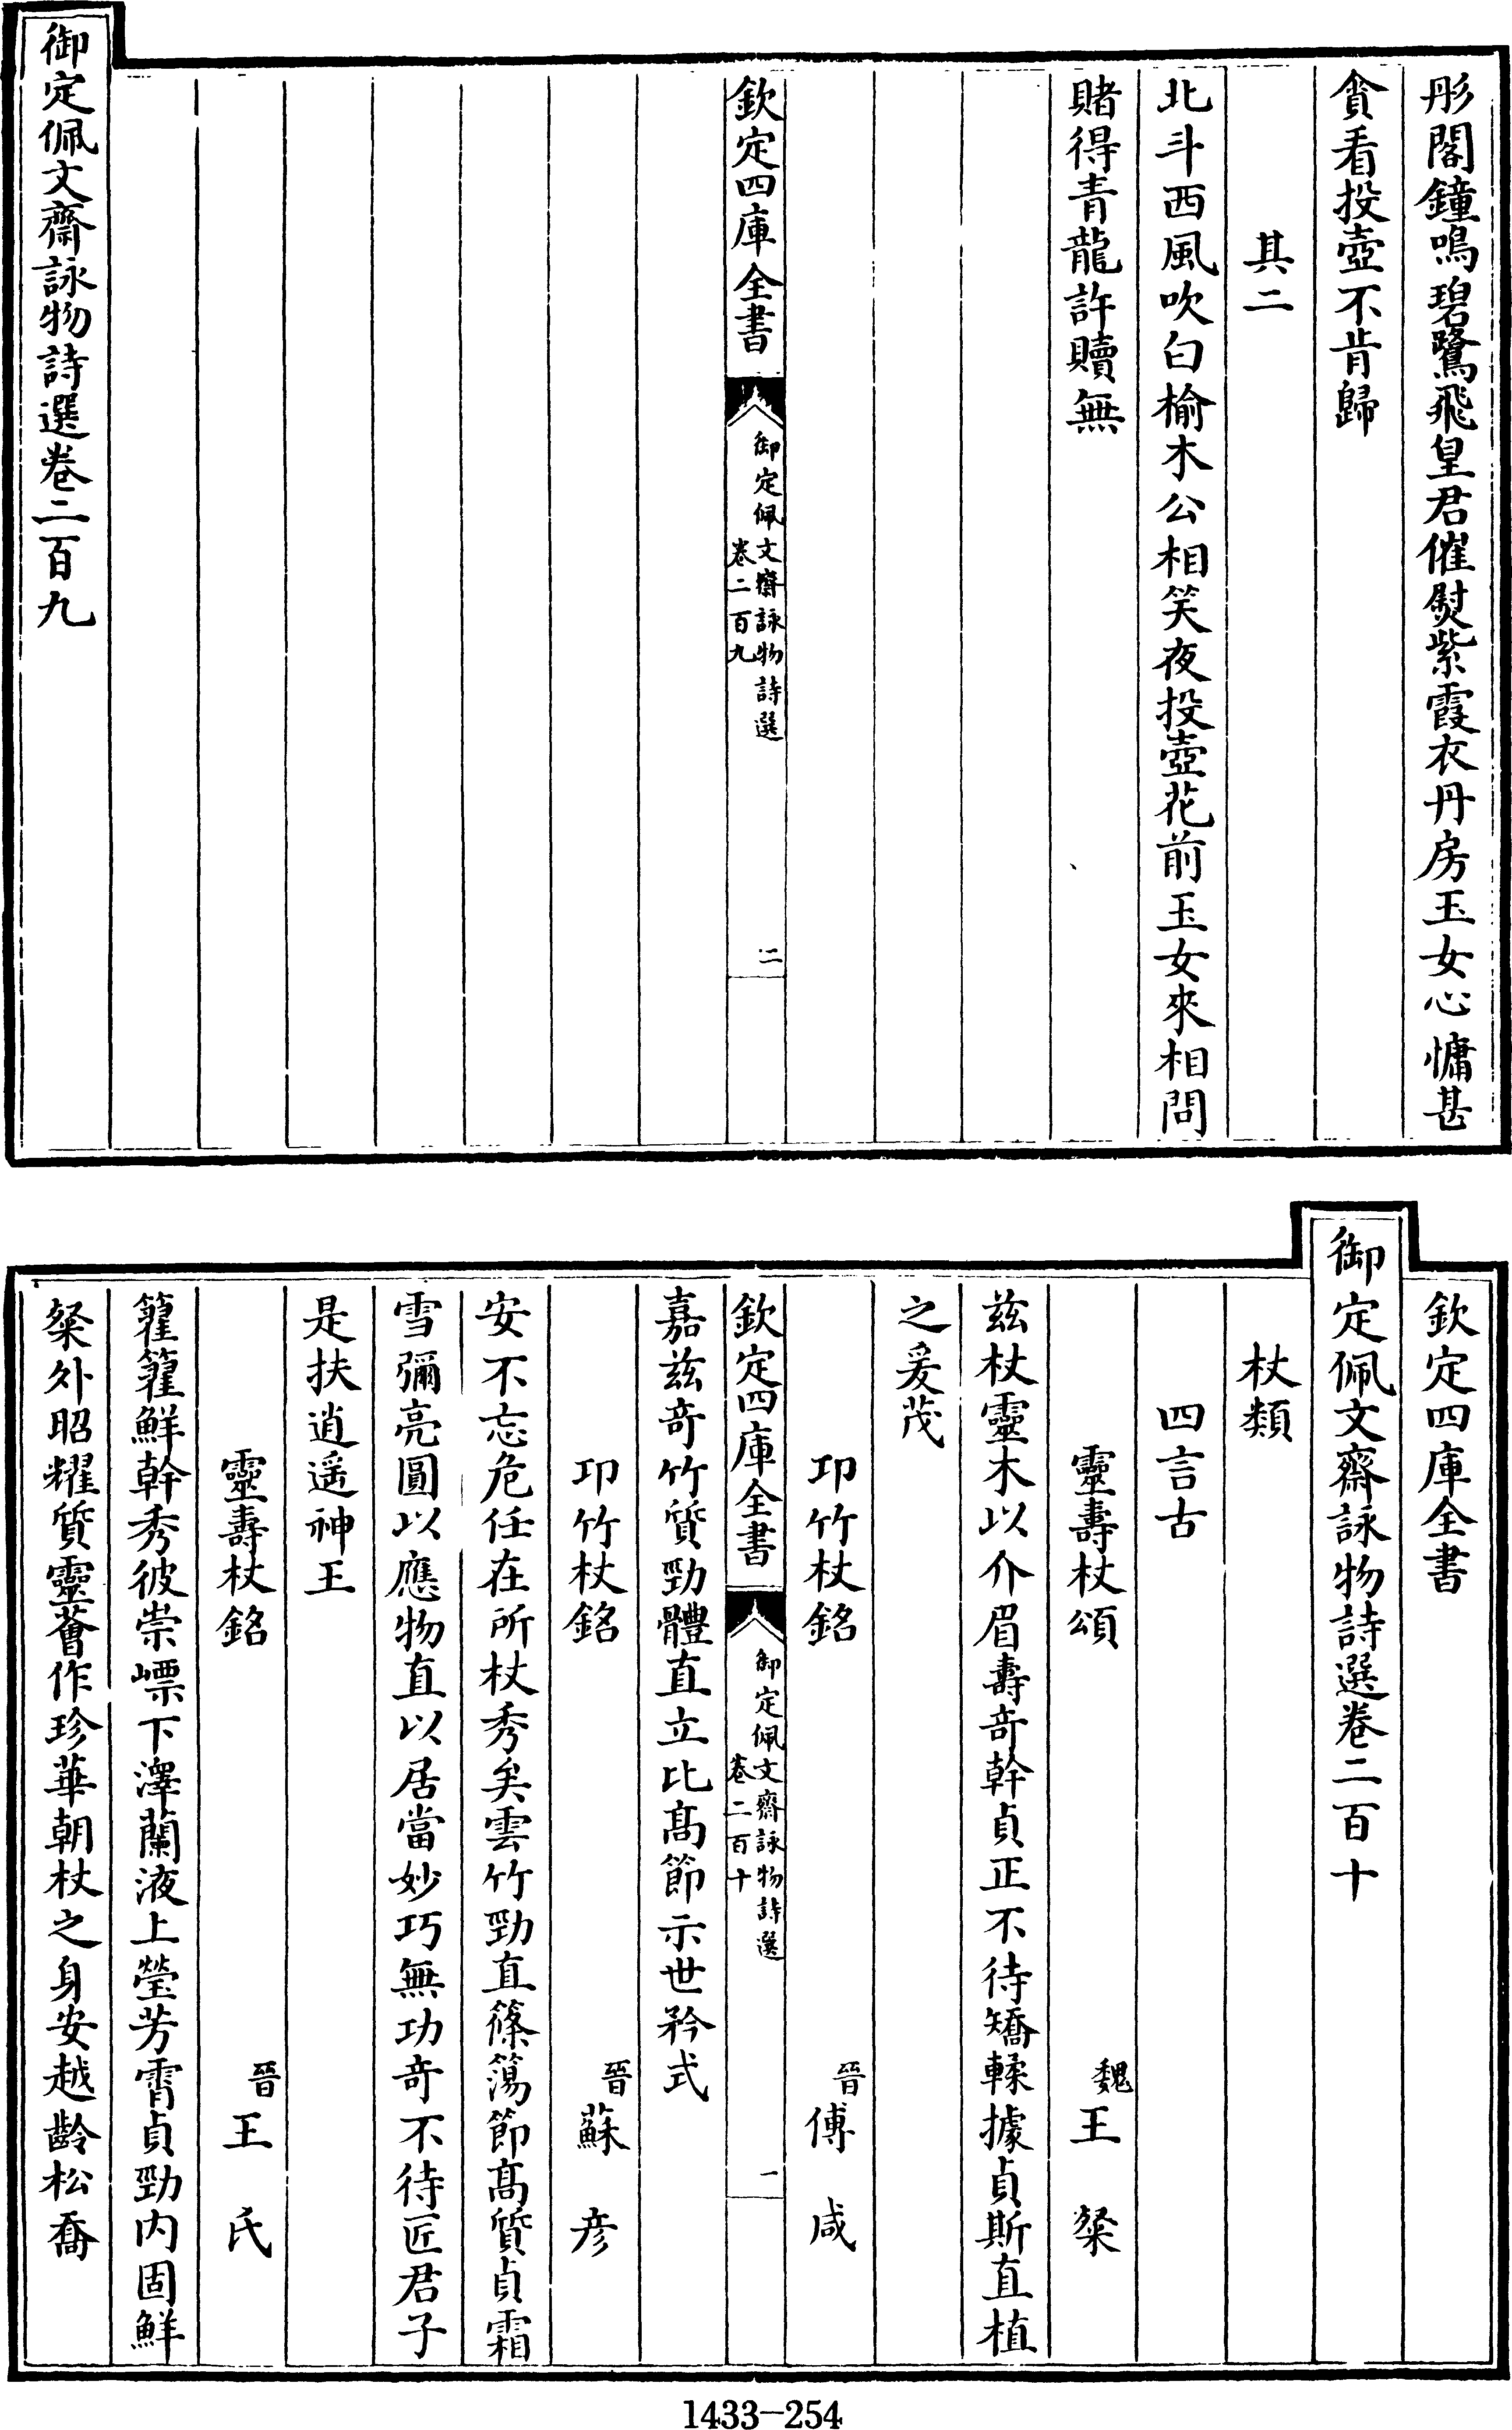 彤閣鐘鳴碧鷺飛皇君催熨紫霞衣丹房玉女心慵甚
貪看投壺不肯歸
其二
北斗西風吹白榆木公相笑夜投壺花前玉女來相問
賭得青龍許贖無
欽定四庫全書
御定佩文齋詠物詩選
卷二百九
二
御定佩文齋詠物詩選卷二百九
欽定四庫全書
御定佩文齋詠物詩選卷二百十
杖類
四言古
靈壽杖頌 魏王粲
茲杖靈木以介眉壽竒幹貞正不待矯輮據貞斯直植
之爰茂
邛竹杖銘 晉傅咸
欽定四庫全書
御定佩文齋詠物詩選
卷二百十
一
嘉茲竒竹質勁體直立比髙節示世矜式
邛竹杖銘 晉蘇彦
安不忘危任在所杖秀矣雲竹勁直篠簜節髙質貞霜
雪彌亮圓以應物直以居當妙巧無功竒不待匠君子
是扶逍遥神王
靈壽杖銘 晉王氏
籊籊鮮幹秀彼崇嶫下澤蘭液上瑩芳霄貞勁内固鮮
粲外昭耀質靈薈作珍華朝杖之身安越齡松喬
1433-254